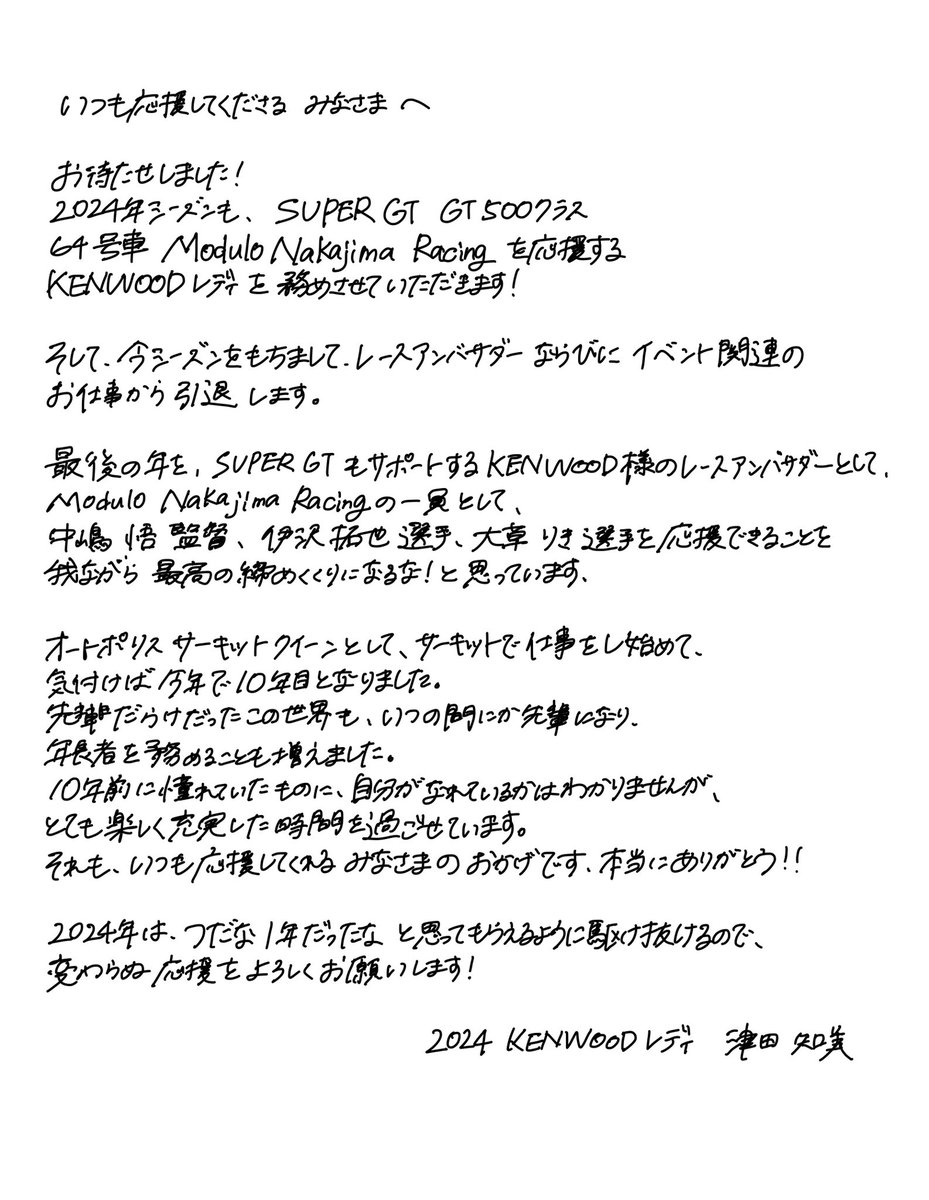 いつも応援してくださる みなさまへ
お待たせしました!
2024年シーズンも、SUPER GT GT500クラス
64号車 Modulo Nakajima Racing を応援する
KENWOODレディを務めさせていただきます!
そして、今シーズンをもちまして、レースアンバサダー ならびに イベント関連の
お仕事から引退します。
最後の年を、SUPER GTもサポートするKENWOOD様のレースアンバサダーとして、
Modulo Nakajima Racingの一員として、
中嶋 悟 監督、伊沢拓也選手、大草りき選手を応援できることを
我ながら 最高の締めくくりになるな!と思っています、
オートポリス サーキットクイーンとして、サーキットで仕事をし始めて、
気付けば今年で10年目となりました。
先輩だらけだったこの世界も、いつの間にか先輩になり、
年長者を務めることも増えました。
10年前に憧れていたものに、自分がなれているかはわかりませんが、
とても楽しく充実した時間を過ごせています。
それも、いつも応援してくれる みなさまの おかげです、本当にありがとう!!
2024年は、つだな1年だったな と思ってもらえるように駆け抜けるので、
変わらぬ応援をよろしくお願いします!
2024 KENWOODレディ 津田 知美